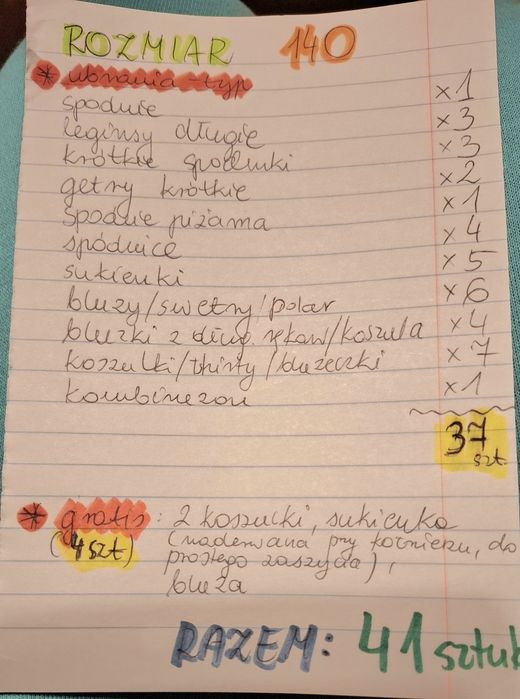 ROZMIAR 140
* ubrania - typ
spodnie x1
leginsy długie x3
krótkie spodenki x3
getry krótkie x2
spodnie piżama x1
spódnice x4
sukienki x5
bluzy/swetry/polar x6
bluzki z dług. rękaw/koszula x4
koszulki/tshirty/bluzeczki x7
kombinezon x1
37
szt.
* gratis: 2 koszulki, sukienka
(4 szt) (naderwana przy kołnierzu, do
prostego zaszycia),
bluza
RAZEM: 41 sztuk